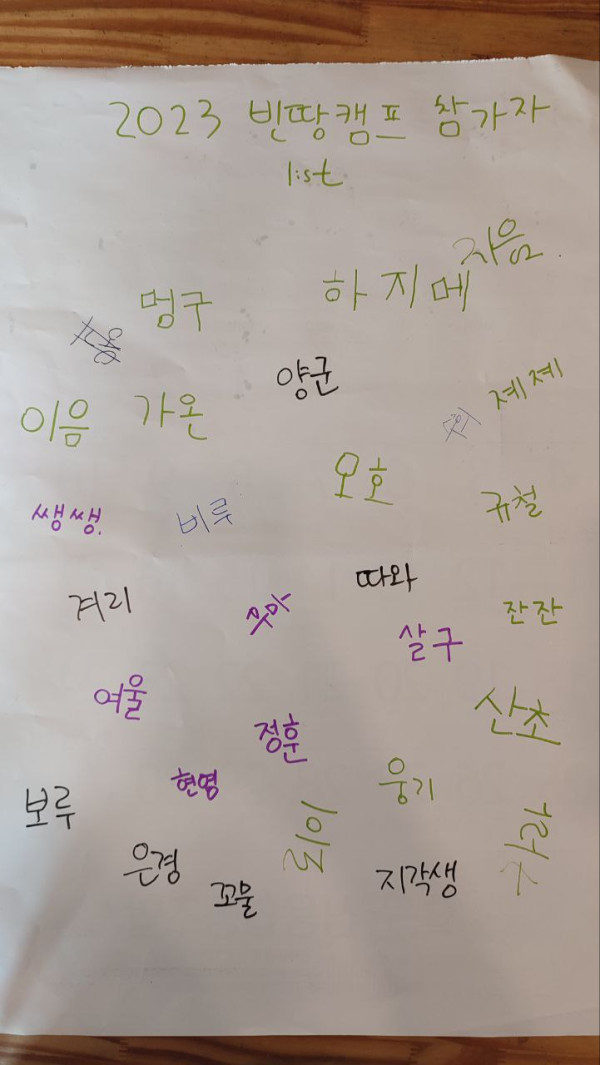 2023 빈땅캠프 참가자
list
지음
하지메
멍구
양군
제제
이음
가온
오호
규철
쌩쌩.
비루
따와
계리
우아
잔잔
살구
여울
산초
정훈
현영
웅기
보루
은경
꼬물
지각생